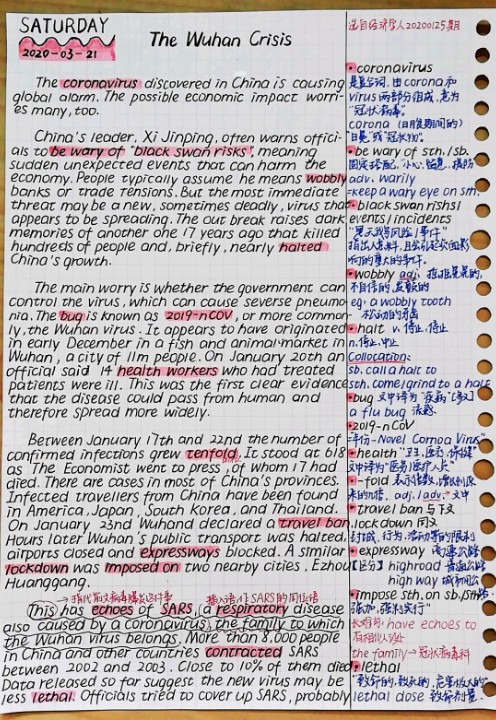 SATURDAY
2020-03-21
The Wuhan Crisis
The coronavirus discovered in China is causing
global alarm. The possible economic impact worri-
es many, too.
China's leader, Xi Jinping, often warns offici-
als to be wary of "black swan risks", meaning
sudden unexpected events that can harm the
economy. People typically assume he means wobbly
banks or trade tensions. But the most immediate
threat may be a new, sometimes deadly, virus that
appears to be spreading. The out break raises dark
memories of another one 17 years ago that killed
hundreds of people and, briefly, nearly halted
China's growth.
The main worry is whether the government can
control the virus, which can cause severse pneumo-
nia. The bug is known as 2019-nCOV, or more common-
ly, the Wuhan virus. It appears to have originated
in early December in a fish and animal-market in
Wuhan, a city of 11m people. On January 20th an
official said 14 health workers who had treated
patients were ill. This was the first clear evidence
that the disease could pass from human and
therefore spread more widely.
Between January 17th and 22nd the number of
confirmed infections grew tenfold. It stood at 618
as The Economist went to press, of whom 17 had
died. There are cases in most of China's provinces.
Infected travellers from China have been found
in America, Japan, South Korea, and Thailand.
On January 23nd Wuhand declared a travel ban.
Hours later Wuhan's public transport was halted,
airports closed and expressways blocked. A similar
lockdown was imposed on two nearby cities, Ezhou
Huanggang.
This has echoes of SARS, (a respiratory disease
also caused by a coronavirus), the family to which
the Wuhan virus belongs. More than 8,000 people
in China and other countries contracted SARS
between 2002 and 2003. Close to 10% of them died.
Data released so far suggest the new virus may be
less lethal. Officials tried to cover up SARS, probably
选自经济学人20200125
coronavirus
是复合词, 由 corona 和
virus 两部分组成, 意为
"冠状病毒"
corona (日食期间的)
"日冕"或"冠状物"
be wary of sth./sb.
adv. warily
=keep a wary eye on sm.
black swan rishs/
events/incidents
"黑天鹅等风险/事件"
wobbly adj.
eg: a wobbly tooth
松动的牙齿
halt v. 停止
n. 停止, 中止
Collocation:
sb. call a halt to
sth. come/grind to a halt
bug
a flu bug 流感
2019-nCoV
=年份-Novel Corona Virus
health "卫生, 医药, 保健"
-fold
travel ban 与下文
lockdown 同义
expressway 高速公路
highroad 普通公路
high way 城市间公
impose sth. on sb./sth.
"强加, 强制实行"
have echoes to
the family → 冠状病毒科
lethal
lethal dose 致命剂量